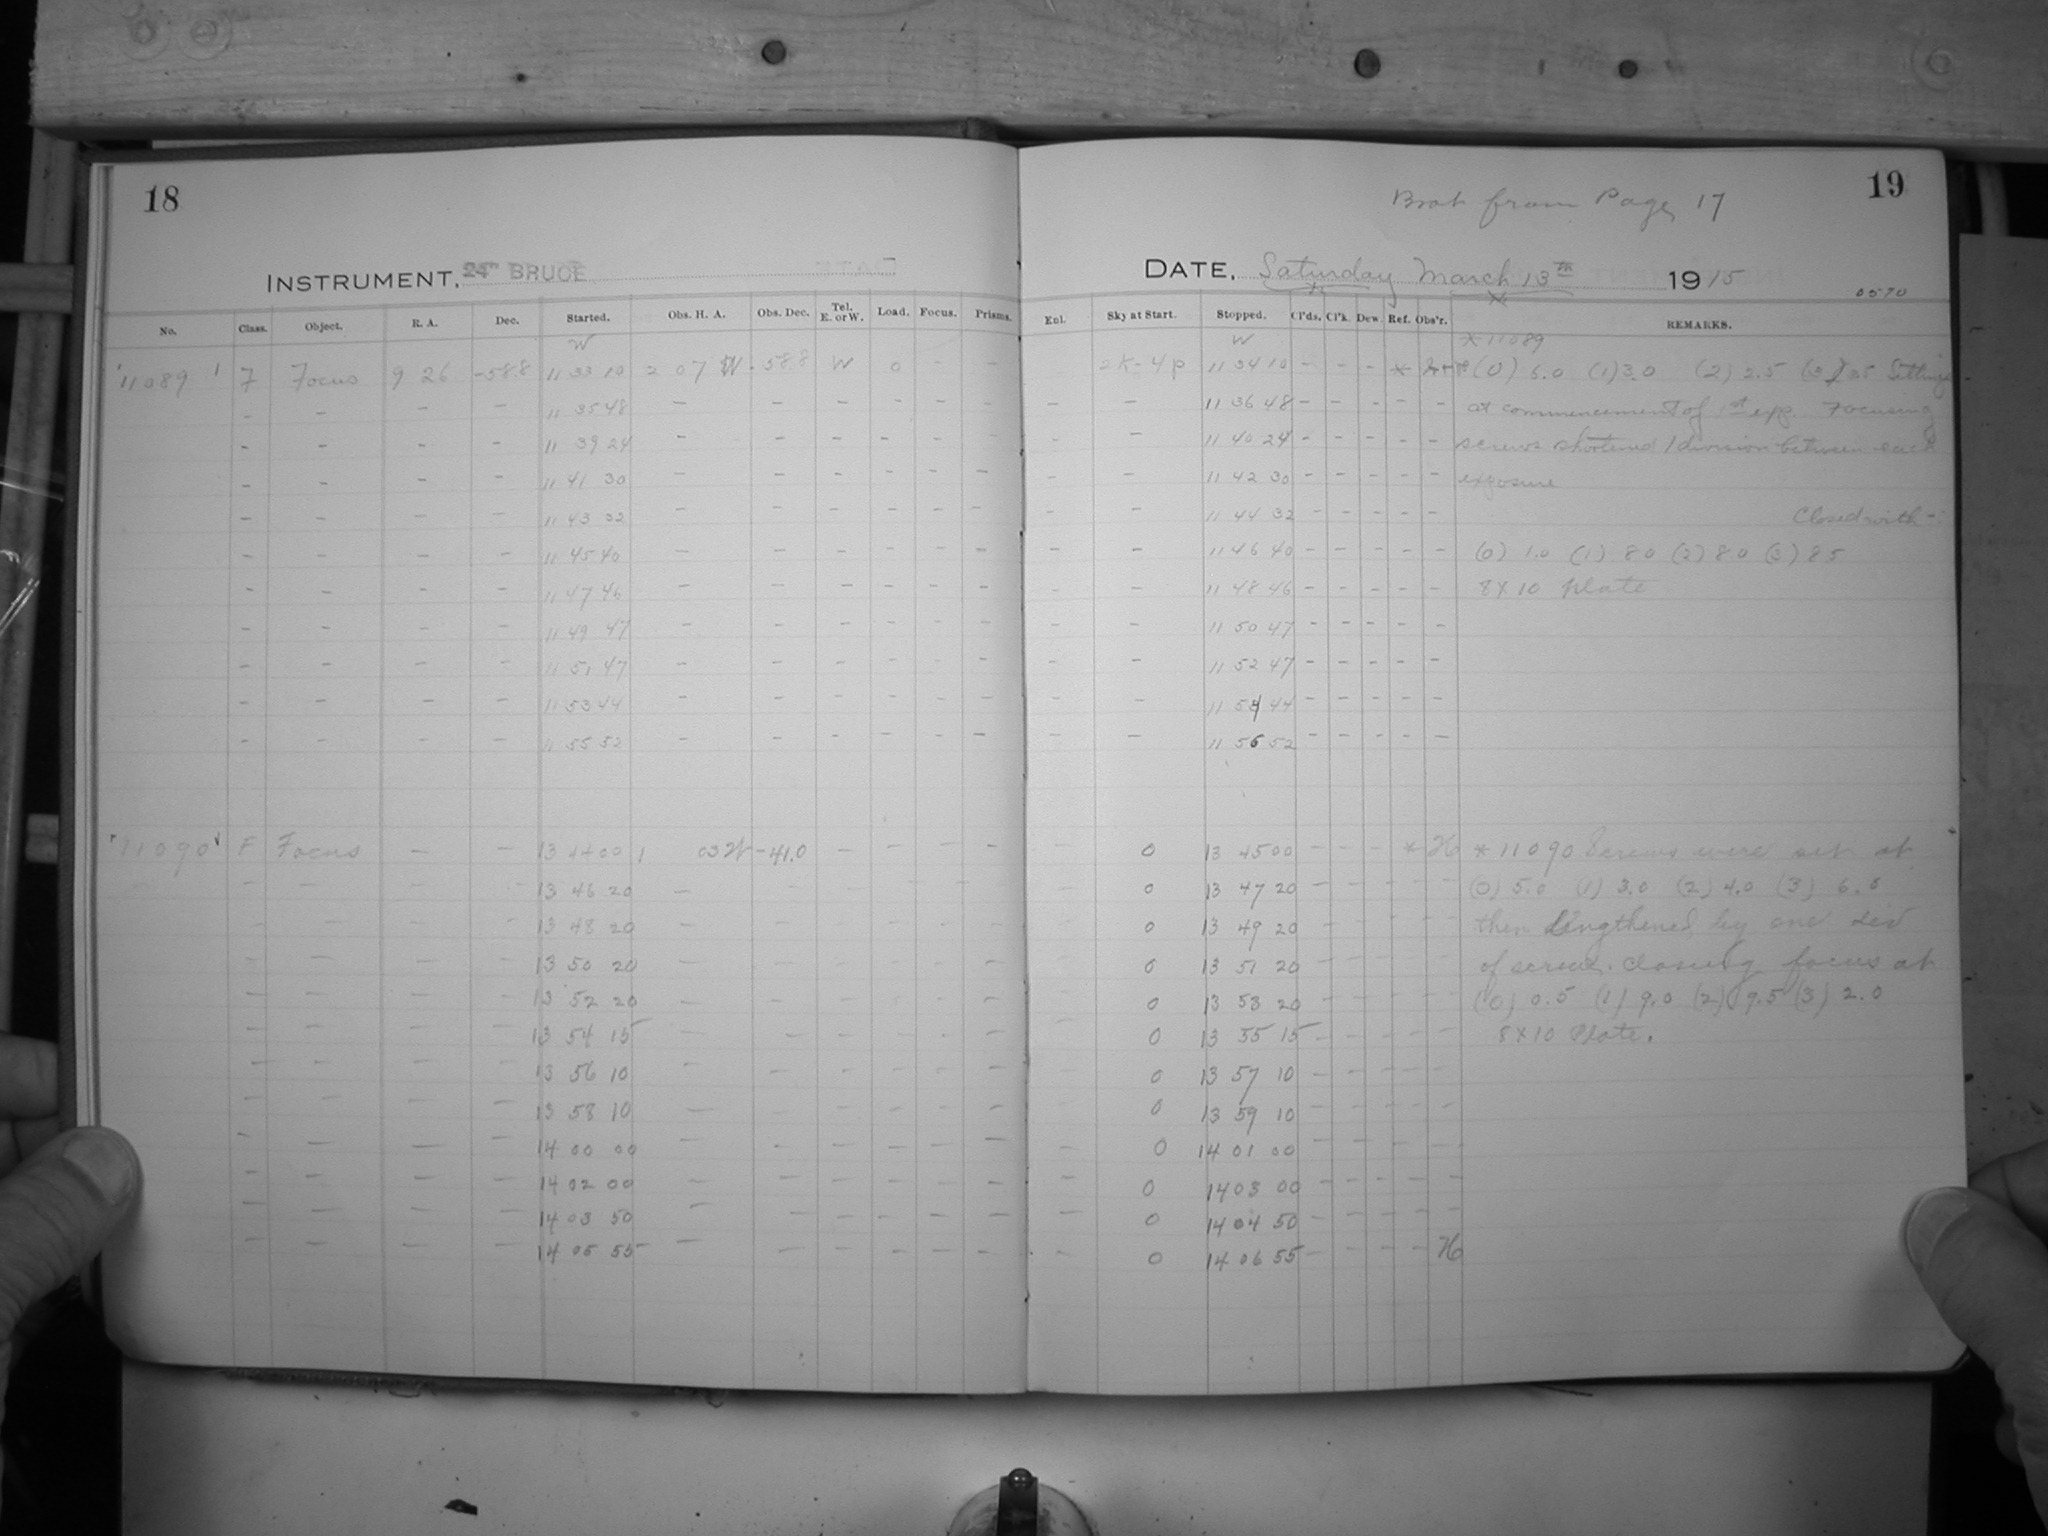 18
INSTRUMENT, 24" BRUCE
No. Class. Object. R. A. Dec. Started. Obs. H. A. Obs. Dec. Tel. E. or W. Load. Focus. Prisms.
W
11089 F Focus 9 26 -58.8 11 33 10 2 07 W -58.8 W 0 - -
- - - - 11 35 48 - - - - - -
- - - - 11 39 24 - - - - - -
- - - - 11 41 30 - - - - - -
- - - - 11 43 32 - - - - - -
- - - - 11 45 40 - - - - - -
- - - - 11 47 46 - - - - - -
- - - - 11 49 47 - - - - - -
- - - - 11 51 47 - - - - - -
- - - - 11 53 44 - - - - - -
- - - - 11 55 52 - - - - - -
11090 F Focus - - 13 44 00 1 03 W -41.0 - - - -
- - - - 13 46 20 - - - - - -
- - - 13 48 20 - - - - - -
- - - - 13 50 20 - - - - - -
- - - - 13 52 20 - - - - - -
- - - - 13 54 15 - - - - - -
- - - - 13 56 10 - - - - - -
- - - - 13 58 10 - - - - - -
- - - - 14 00 00 - - - - - -
- - - - 14 02 00 - - - - - -
- - - - 14 03 50 - - - - - -
- - - - 14 05 55 - - - - - -
19
Brot from Page 17
DATE, Saturday March 13th 1915
0570
Enl. Sky at Start. Stopped. Cl'ds. Cl'k. Dew. Ref. Obs'r. REMARKS.
W *11089
2K-4p 11 34 10 - - - * (0) 5.0 (1) 3.0 (2) 2.5 (3) Settings
- - 11 36 48 - - - - - at commencement of 1st exp. Focusing
- - 11 40 24 - - - - - screws shortened 1 division between each
- - 11 42 30 - - - - - exposure
- - 11 44 32 - - - - - Closed with -:
- - 11 46 40 - - - - - (0) 1.0 (1) 8.0 (2) 8.0 (3) 8.5
- - 11 48 46 - - - - - 8x10 plate
- - 11 50 47 - - - - -
- - 11 52 47 - - - - -
- - 11 54 44 - - - - -
- - 11 56 52 - - - - -
0 13 45 00 - - - * H *11090 Screws were set at
- 0 13 47 20 - - - - - (0) 5.0 (1) 3.0 (2) 4.0 (3) 6.0
0 13 49 20 - - - - - then lengthened by one div
- 0 13 51 20 - - - - - of screw. Closing focus at
- 0 13 53 20 - - - - - (0) 0.5 (1) 9.0 (2) 9.5 (3) 2.0
- 0 13 55 15 - - - - - 8x10 Plate.
- 0 13 57 10 - - - - -
- 0 13 59 10 - - - - -
- 0 14 01 00 - - - - -
- 0 14 03 00 - - - - -
- 0 14 04 50 - - - - -
- 0 14 06 55 - - - - H